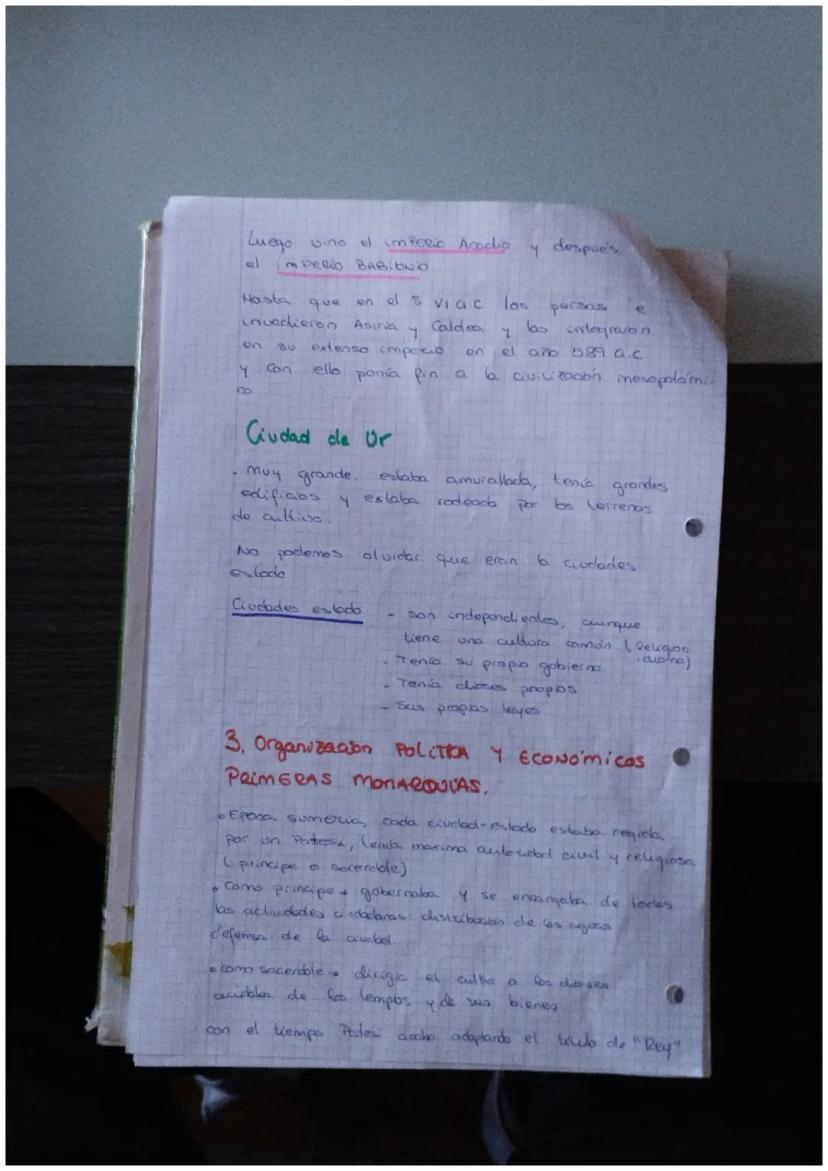 Luego vino el imperio Acadio y después
el imPERIO BABILONIO
Hasta que en el S VI a.C los persas e
invadieron Asiria y Caldea y las integraron
en su extenso imperio en el año 539 a.c
y con ello ponía fin a la civilización mesopotámi-
ca
Ciudad de Ur
- muy grande, estaba amurallada, tenía grandes
edificios y estaba rodeada por los terrenos
de cultivo.
No podemos olvidar que eran 6 ciudades
estado
Ciudades estado
- son independientes, aunque
tiene una cultura común (Religion,
idioma)
- Tenía su propio gobierno
- Tenía dioses propios
- Sus propias leyes
3. Organización POLITICA Y Económicas
PRimERAS monARQUIAS.
• Epoca sumeria, cada ciudad-estado estaba regida
por un Patesi, tenía maxima autoridad civil y religiosa
(principe o sacerdote)
• Como principe → gobernaba y se encargaba de todas
las actividades ciudadanas: distribucion de las aguas
defensa de la ciudad.
• como sacerdote → dirigia el culto a los dioses
de los templos y de sus bienes
con el tiempo Patesi acabo adoptando el titulo de "Rey"